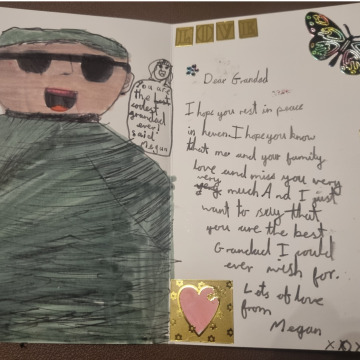 You are
the best
coolest
grandad
ever!
said
Megan
LOVE
Dear Grandad
I hope you rest in peace
in heven. I hope you know
that me and your family
love and miss you very
very much A and I just
want to say that
you are the best
Grandad I could
ever wish for.
Lots of love
from
Megan
xxx